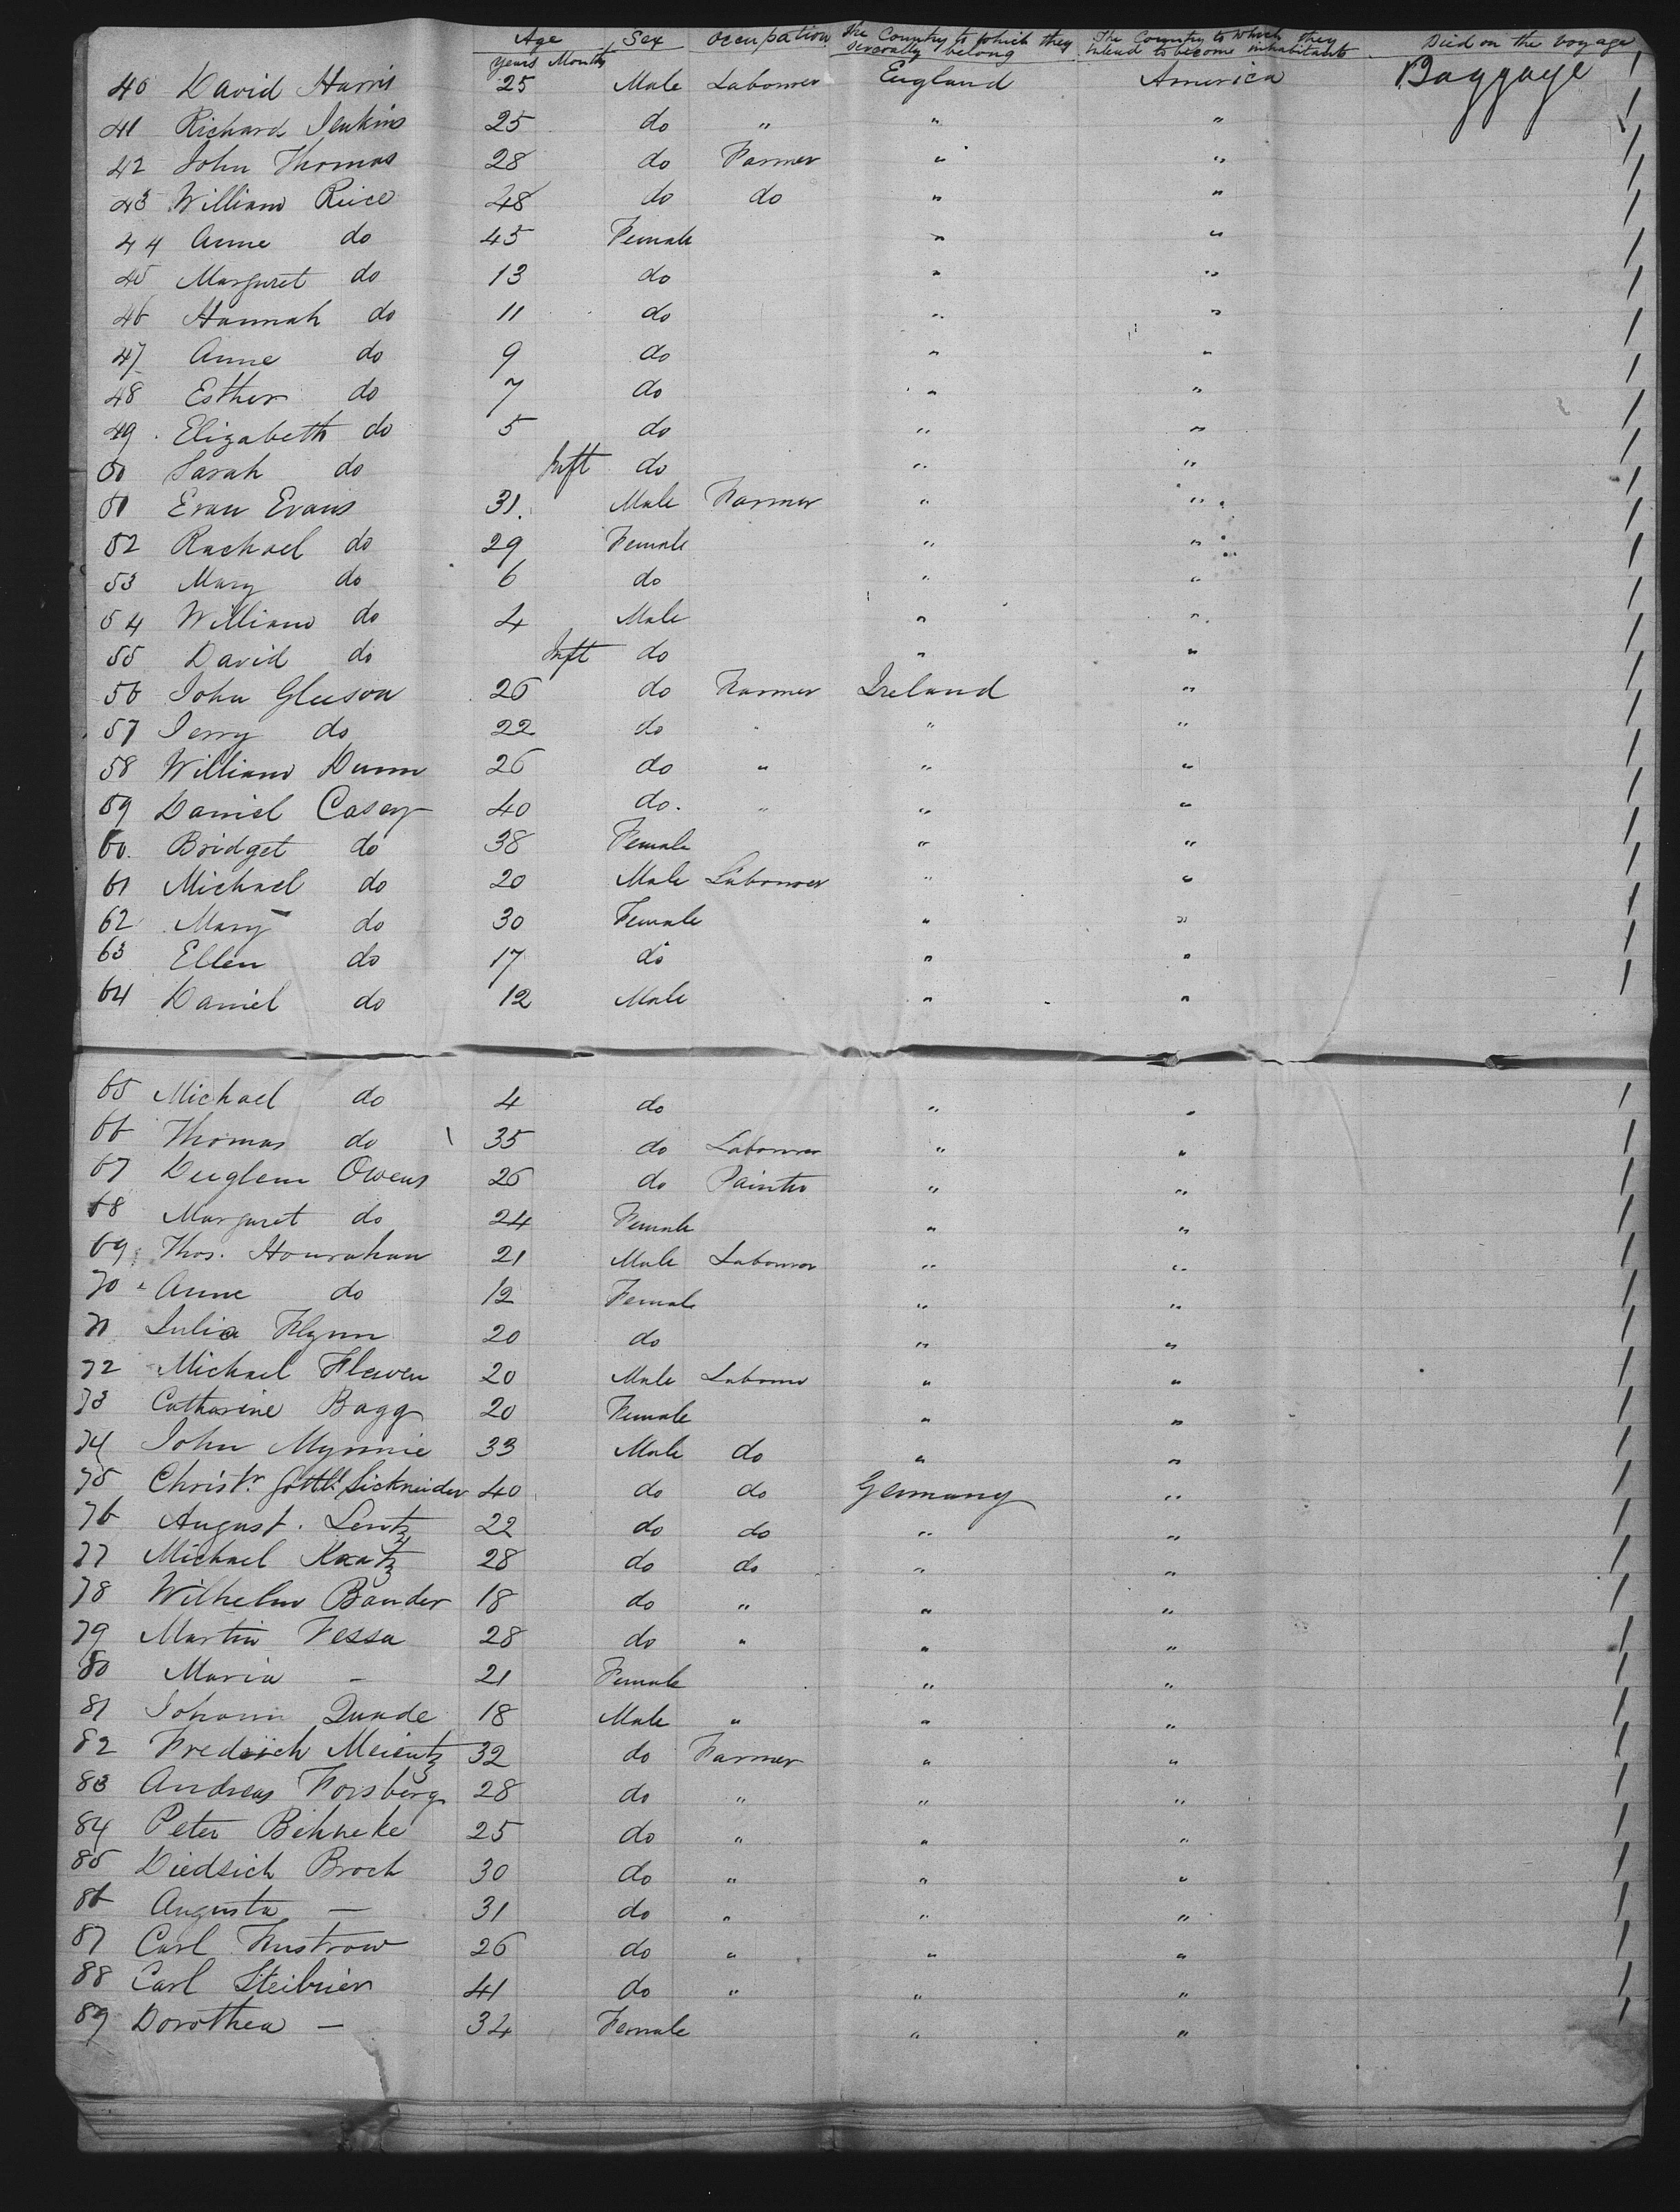 Age Sex Occupation The Country to which they severally belong The Country to which they intend to become inhabitants Died on the voyage
Years Months
40 David Harris 25 Male Labourer England America Baggage 1
41 Richard Jenkins 25 do " " " 1
42 John Thomas 28 do Farmer " " 1
43 William Reice 48 do do " " 1
44 Anne do 45 Female " " 1
45 Margaret do 13 do " " 1
46 Hannah do 11 do " " 1
47 Anne do 9 do " " 1
48 Esther do 7 do " " 1
49 Elizabeth do 5 do " " 1
50 Sarah do Inft do " " 1
51 Evan Evans 31 Male Farmer " " 1
52 Rachael do 29 Female " " 1
53 Mary do 6 do " " 1
54 William do 4 Male " " 1
55 David do Inft do " " 1
56 John Gleeson 26 do Farmer Ireland " 1
57 Jerry do 22 do " " " 1
58 William Dunn 26 do " " " 1
59 Daniel Casey 40 do. " " " 1
60. Bridget do 38 Female " " 1
61 Michael do 20 Male Labourer " " 1
62 Mary do 30 Female " " 1
63 Ellen do 17 do " " 1
64 Daniel do 12 Male " " 1
65 Michael do 4 do " " 1
66 Thomas do 35 do Labourer " " 1
67 Owens 26 do Painter " " 1
68 Margaret do 24 Female " " 1
69 Thos. Hourahan 21 Male Labourer " " 1
70 Anne do 12 Female " " 1
71 Julia Flynn 20 do " " 1
72 Michael 20 Male Labourer " " 1
73 Catharine Bagg 20 Female " " 1
74 John Mynnie 33 Male do " " 1
75 Christr. Gottl. 40 do do Germany " 1
76 August. Lentz 22 do do " " 1
77 Michael Kaatz 28 do do " " 1
78 Wilhelm Bander 18 do " " " 1
79 Martin Fessa 28 do " " " 1
80 Maria — 21 Female " " 1
81 Johann Quade 18 Male " " " 1
82 Fredrich Meientz 32 do Farmer " " 1
83 Andreas Forsberg 28 do " " " 1
84 Peter Behneke 25 do " " " 1
85 Diedrich Broch 30 do " " " 1
86 Augusta — 31 do " " " 1
87 Carl 26 do " " " 1
88 Carl Steibrier 41 do " " " 1
89 Dorothea — 34 Female " " 1